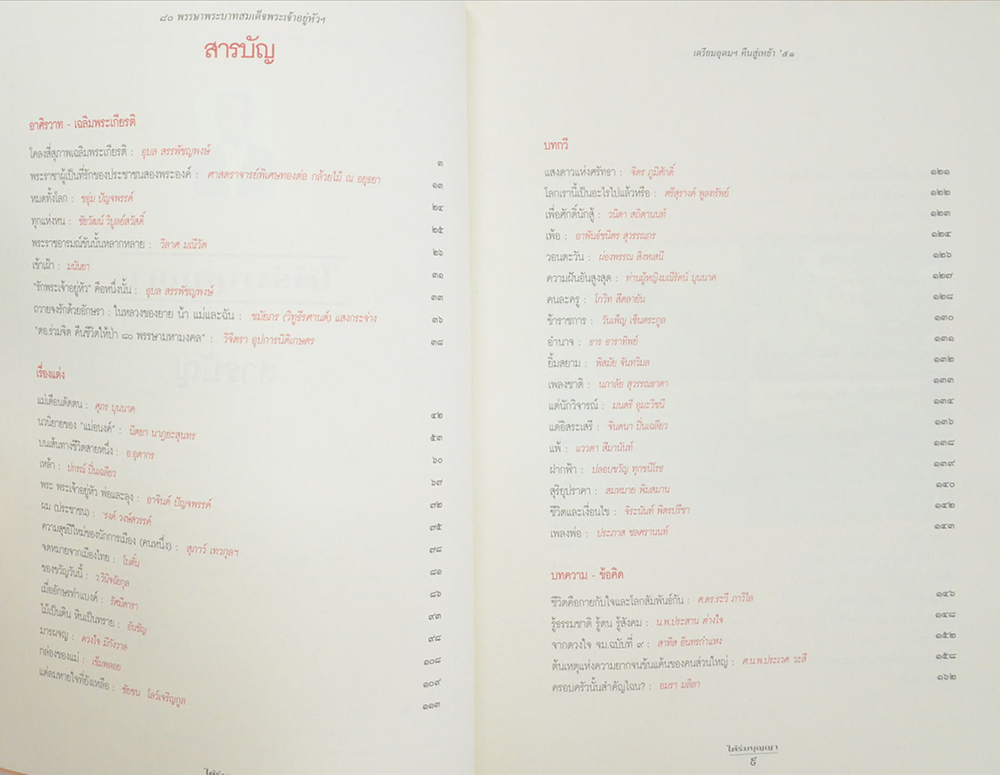 ๘๐ พรรษาพระบาทสมเด็จพระเจ้าอยู่หัวฯ
สารบัญ
อาศิรวาท - เฉลิมพระเกียรติ
โคลงสี่สุภาพเฉลิมพระเกียรติ : อุบล สรรพัชญพงษ์ ๓
พระราชาผู้เป็นที่รักของประชาชนสองพระองค์ : ศาสตราจารย์พิเศษทองต่อ กล้วยไม้ ณ อยุธยา ๑๓
หมดทั้งโลก : ชอุ่ม ปัญจพรรค์ ๒๔
ทุกแห่งหน : ชัยวัฒน์ วิบูลย์สวัสดิ์ ๒๕
พระราชอารมณ์ขันนั้นหลากหลาย : วิลาศ มณีวัต ๒๖
เข้าเฝ้า : มนันยา ๓๑
"รักพระเจ้าอยู่หัว" คือหนึ่งนั้น : อุบล สรรพัชญพงษ์ ๓๓
ถวายจงรักด้วยอักษรา : ในหลวงของยาย น้า แม่และฉัน : ชมัยภร (วิทูธีรศานต์) แสงกระจ่าง ๓๖
"ดอ.ร่วมจิต คืนชีวิตให้ป่า ๘๐ พรรษามหามงคล" : วิจิตรา อุปการนิติเกษตร ๓๘
เรื่องแต่ง
แม่เดือนตัดตน : ศุภร บุนนาค ๔๒
นวนิยายของ "แม่อนงค์" : นิตยา นาฏยะสุนทร ๕๓
บนเส้นทางชีวิตสายหนึ่ง : อ.อุดากร ๖๐
เหล้า : ปกรณ์ ปิ่นเฉลียว ๖๗
พระ พระเจ้าอยู่หัว พ่อและลุง : อาจินต์ ปัญจพรรค์ ๗๒
ผม (ประชาชน) : รงค์ วงษ์สวรรค์ ๗๕
ความสุขปีใหม่ของนักการเมือง (คนหนึ่ง) : สุภาว์ เทวกุลฯ ๗๘
จดหมายจากเมืองไทย : โบตั๋น ๘๑
ของขวัญวันนี้ : ว.วินิจฉัยกุล ๘๖
เมื่ออักษรทำแบงค์ : รัศมีดารา ๙๓
ไม้เป็นดิน หินเป็นทราย : อัญชัญ ๙๘
มารผจญ : ดวงใจ ๑๐๘
กล่องของแม่ : เข็มพลอย ๑๐๙
แต่ลมหายใจที่ยังเหลือ : ชัยชน โลว์เจริญกูล ๑๑๓
เตรียมอุดมฯ คืนสู่เหย้า '๕๑
บทกวี
แสงดาวแห่งศรัทธา : จิตร ภูมิศักดิ์ ๑๒๑
โลกเรานี้เป็นอะไรไปแล้วหรือ : ศรีสุรางค์ พูลทรัพย์ ๑๒๒
เพื่อศักดิ์นักสู้ : วนิดา สถิตานนท์ ๑๒๓
เพ้อ : อาพันธ์ชนิตร สุวรรณกร ๑๒๔
วอนตะวัน : ผ่องพรรณ สิงหเสนี ๑๒๖
ความฝันอันสูงสุด : ท่านผู้หญิงมณีรัตน์ บุนนาค ๑๒๗
คนละครู : โกวิท สีตลายัน ๑๒๘
ข้าราชการ : วันเพ็ญ เซ็นตระกูล ๑๓๐
อำนาจ : ธาร ธาราทิพย์ ๑๓๑
ยิ้มสยาม : พิสมัย จันทวิมล ๑๓๒
เพลงชาติ : นภาลัย สุวรรณธาดา ๑๓๓
แด่นักวิจารณ์ : มนตรี อุมะวิชนี ๑๓๔
แด่อิสระเสรี : จินตนา ปิ่นเฉลียว ๑๓๖
แพ้ : แววตา สีมานันท์ ๑๓๘
ฝากฟ้า : ปลอบขวัญ ทุกขนิโรธ ๑๓๙
สุริยุปราคา : สมหมาย พิมสมาน ๑๔๐
ชีวิตและเงื่อนไข : จิระนันท์ พิตรปรีชา ๑๔๒
เพลงพ่อ : ประภาส ชลศรานนท์ ๑๔๓
บทความ - ข้อคิด
ชีวิตคือกายกับใจและโลกสัมพันธ์กัน : ศ.ดร.ระวี ภาวิไล ๑๔๖
รู้ธรรมชาติ รู้ตน รู้สังคม : น.พ.ประสาน ต่างใจ ๑๔๘
จากดวงใจ จม.ฉบับที่ ๙ : สาทิส อินทรกำแหง ๑๕๒
ต้นเหตุแห่งความยากจนข้นแค้นของคนส่วนใหญ่ : ศ.น.พ.ประเวศ วะสี ๑๕๘
ครอบครัวนั้นสำคัญไฉน? : อมรา มลิลา ๑๖๒
ใต้ร่มบุญญา